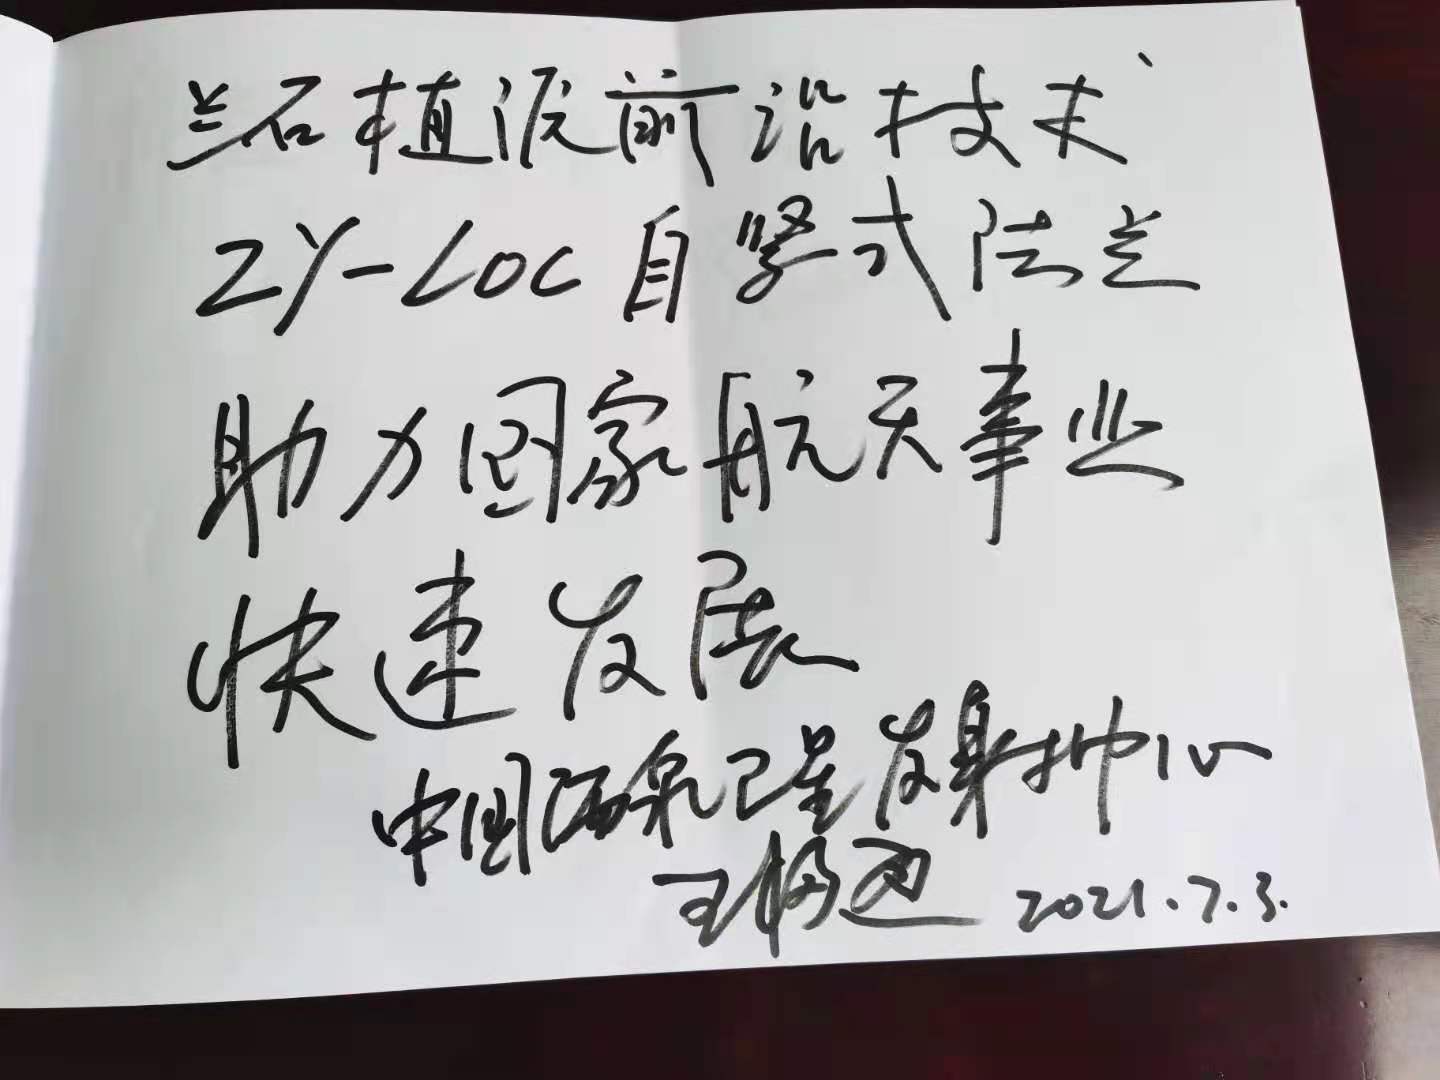 兰石植源前沿技术
ZY-LOC自紧式法兰
助力国家航天事业
快速发展
中国酒泉卫星发射中心
王 2021.7.3.